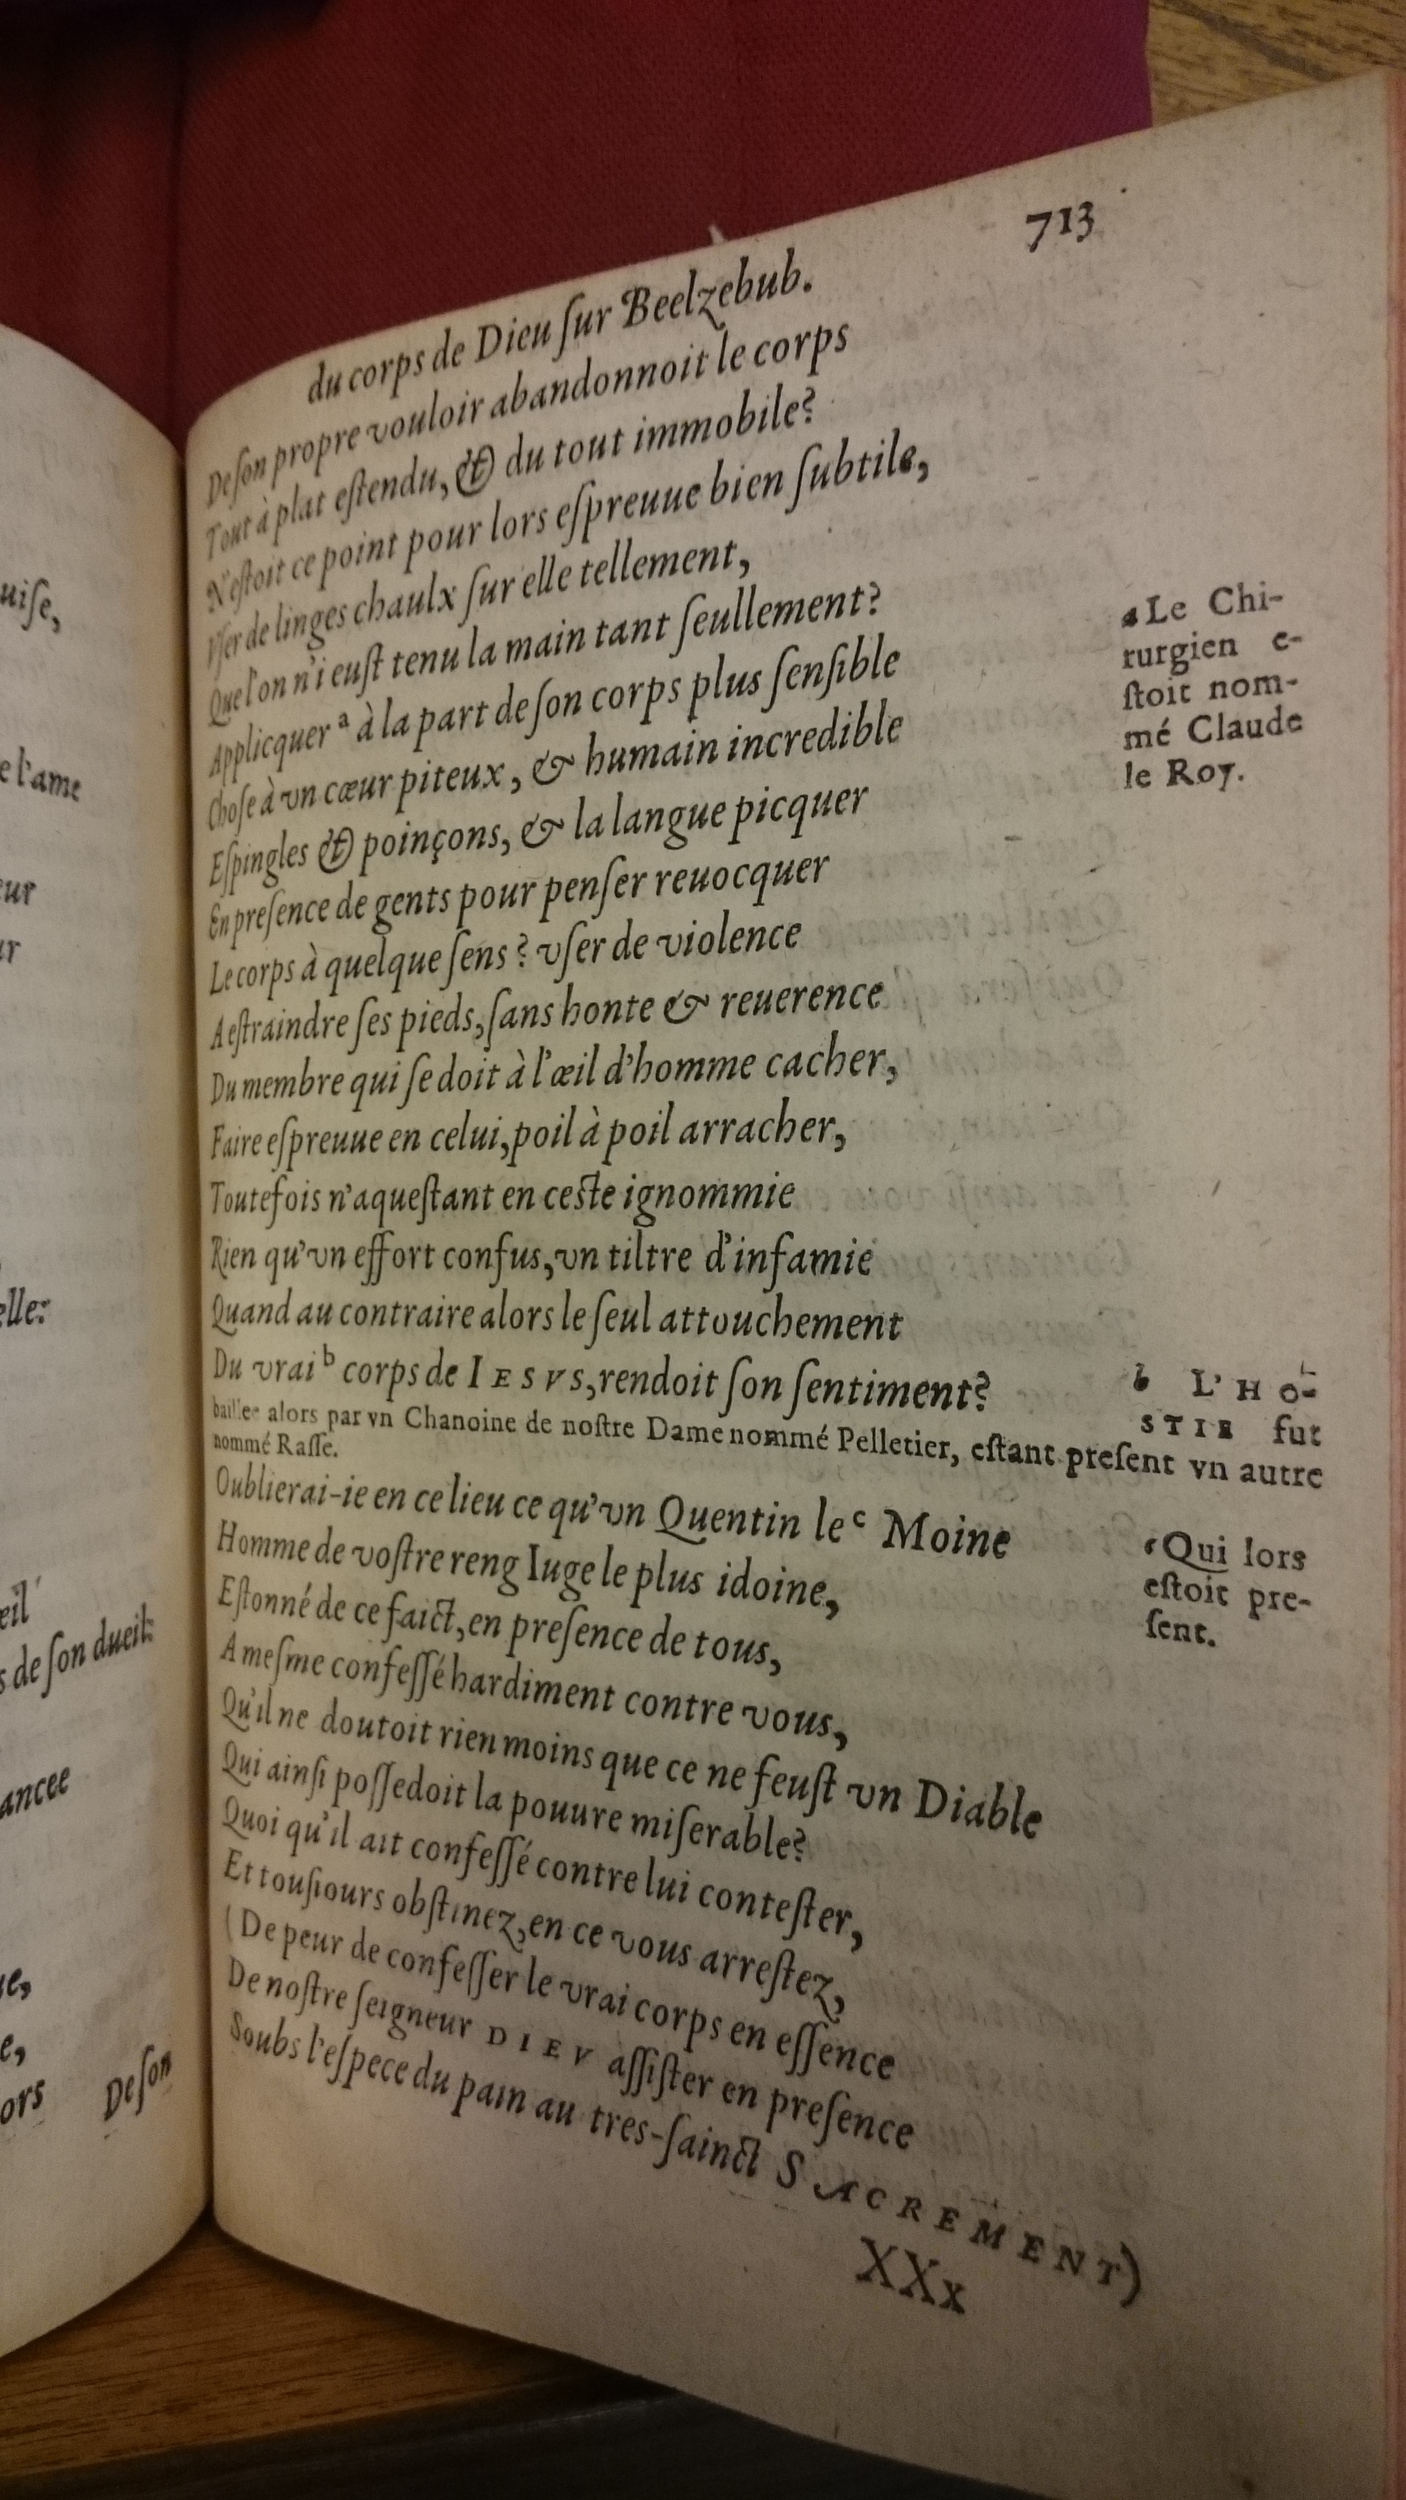 uiſe,
e l'ame
eur
ur
elle:
eil
s de ſon dueil:
ancee
ue,
e,
ors
De ſon
713
du corps de Dieu ſur Beelzebub.
De ſon propre vouloir abandonnoit le corps
Tout à plat eſtendu, & du tout immobile?
N'eſtoit ce point pour lors eſpreuue bien ſubtile,
Vſer de linges chaulx ſur elle tellement,
Que l'on n'i euſt tenu la main tant ſeullement?
Applicquer a à la part de ſon corps plus ſenſible
Choſe à vn cœur piteux, & humain incredible
Eſpingles & poinçons, & la langue picquer
En preſence de gents pour penſer reuocquer
Le corps à quelque ſens? vſer de violence
A eſtraindre ſes pieds, ſans honte & reuerence
Du membre qui ſe doit à l'œil d'homme cacher,
Faire eſpreuue en celui, poil à poil arracher,
Toutefois n'aqueſtant en ceſte ignommie
Rien qu'vn effort confus, vn tiltre d'infamie
Quand au contraire alors le ſeul attouchement
Du vrai b corps de IESVS, rendoit ſon ſentiment?
a Le Chi-
rurgien e-
ſtoit nom-
mé Claude
le Roy.
b L'HO-
STIE fut
baillee alors par vn Chanoine de noſtre Dame nommé Pelletier, eſtant preſent vn autre
nommé Raſſe.
Oublierai-ie en ce lieu ce qu'vn Quentin le c Moine
Homme de voſtre reng Iuge le plus idoine,
Eſtonné de ce faict, en preſence de tous,
A meſme confeſſé hardiment contre vous,
Qu'il ne doutoit rien moins que ce ne feuſt vn Diable
Qui ainſi poſſedoit la pouure miſerable?
Quoi qu'il ait confeſſé contre lui conteſter,
Et touſiours obſtinez, en ce vous arreſtez,
(De peur de confeſſer le vrai corps en eſſence
De noſtre ſeigneur DIEV aſſiſter en preſence
Soubs l'eſpece du pain au tres-ſainct SACREMENT)
c Qui lors
eſtoit pre-
ſent.
XXx